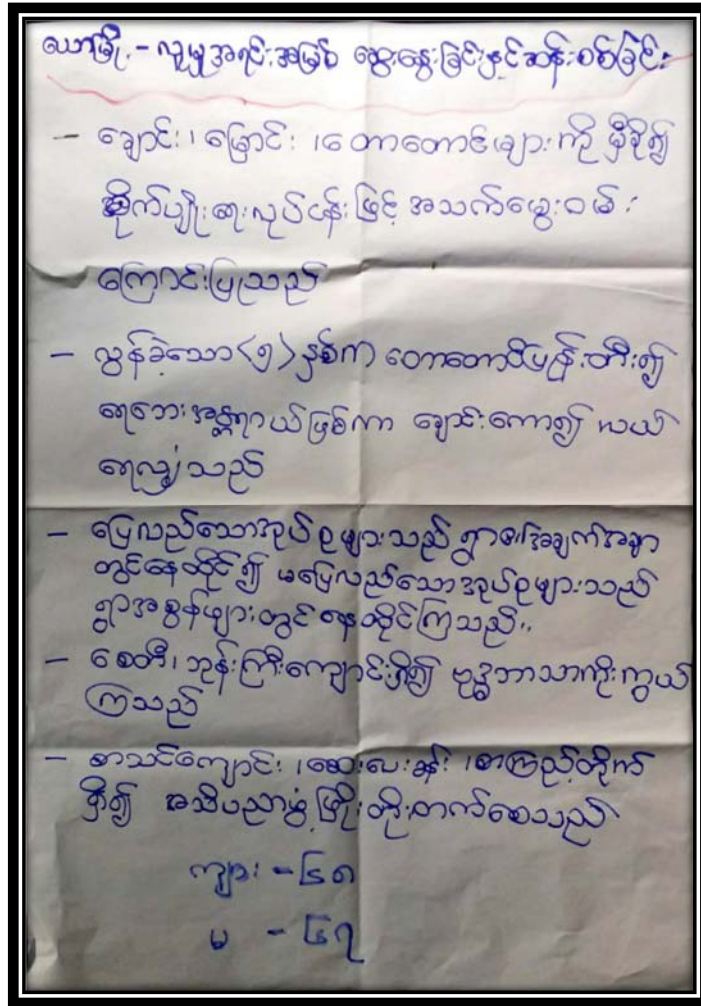 ယာမြို့ - လူမှုအရင်းအမြစ် ဆွေးနွေးခြင်းနှင့်ဆန်းစစ်ခြင်း
- ချောင်း ၊ မြောင်း ၊ တောတောင်များကို မှီခို၍
စိုက်ပျိုးရေးလုပ်ငန်းဖြင့် အသက်မွေးဝမ်း
ကြောင်းပြုသည်
- လွန်ခဲ့သော <၅> နှစ်က တောတောင်ပြုန်းတီး၍
ရေဘေးအန္တရာယ်ဖြစ်ကာ ချောင်းကော၍ လယ်
ရေလျှံသည်
- ပြေလည်သောအုပ်စုများသည် ရွာ၏အချက်အချာ
တွင်နေထိုင်၍ မပြေလည်သောအုပ်စုများသည်
ရွာအစွန်များတွင် နေထိုင်ကြသည်။
- စေတီ၊ ဘုန်းကြီးကျောင်းရှိ၍ ဗုဒ္ဓဘာသာကိုးကွယ်
ကြသည်
- စာသင်ကျောင်း ၊ ဆေးပေးခန်း ၊ စာကြည့်တိုက်
ရှိ၍ အသိပညာမှု ဖြိုးတိုးတက်စေသည်
ကျား - ၆၈
မ - ၆၇